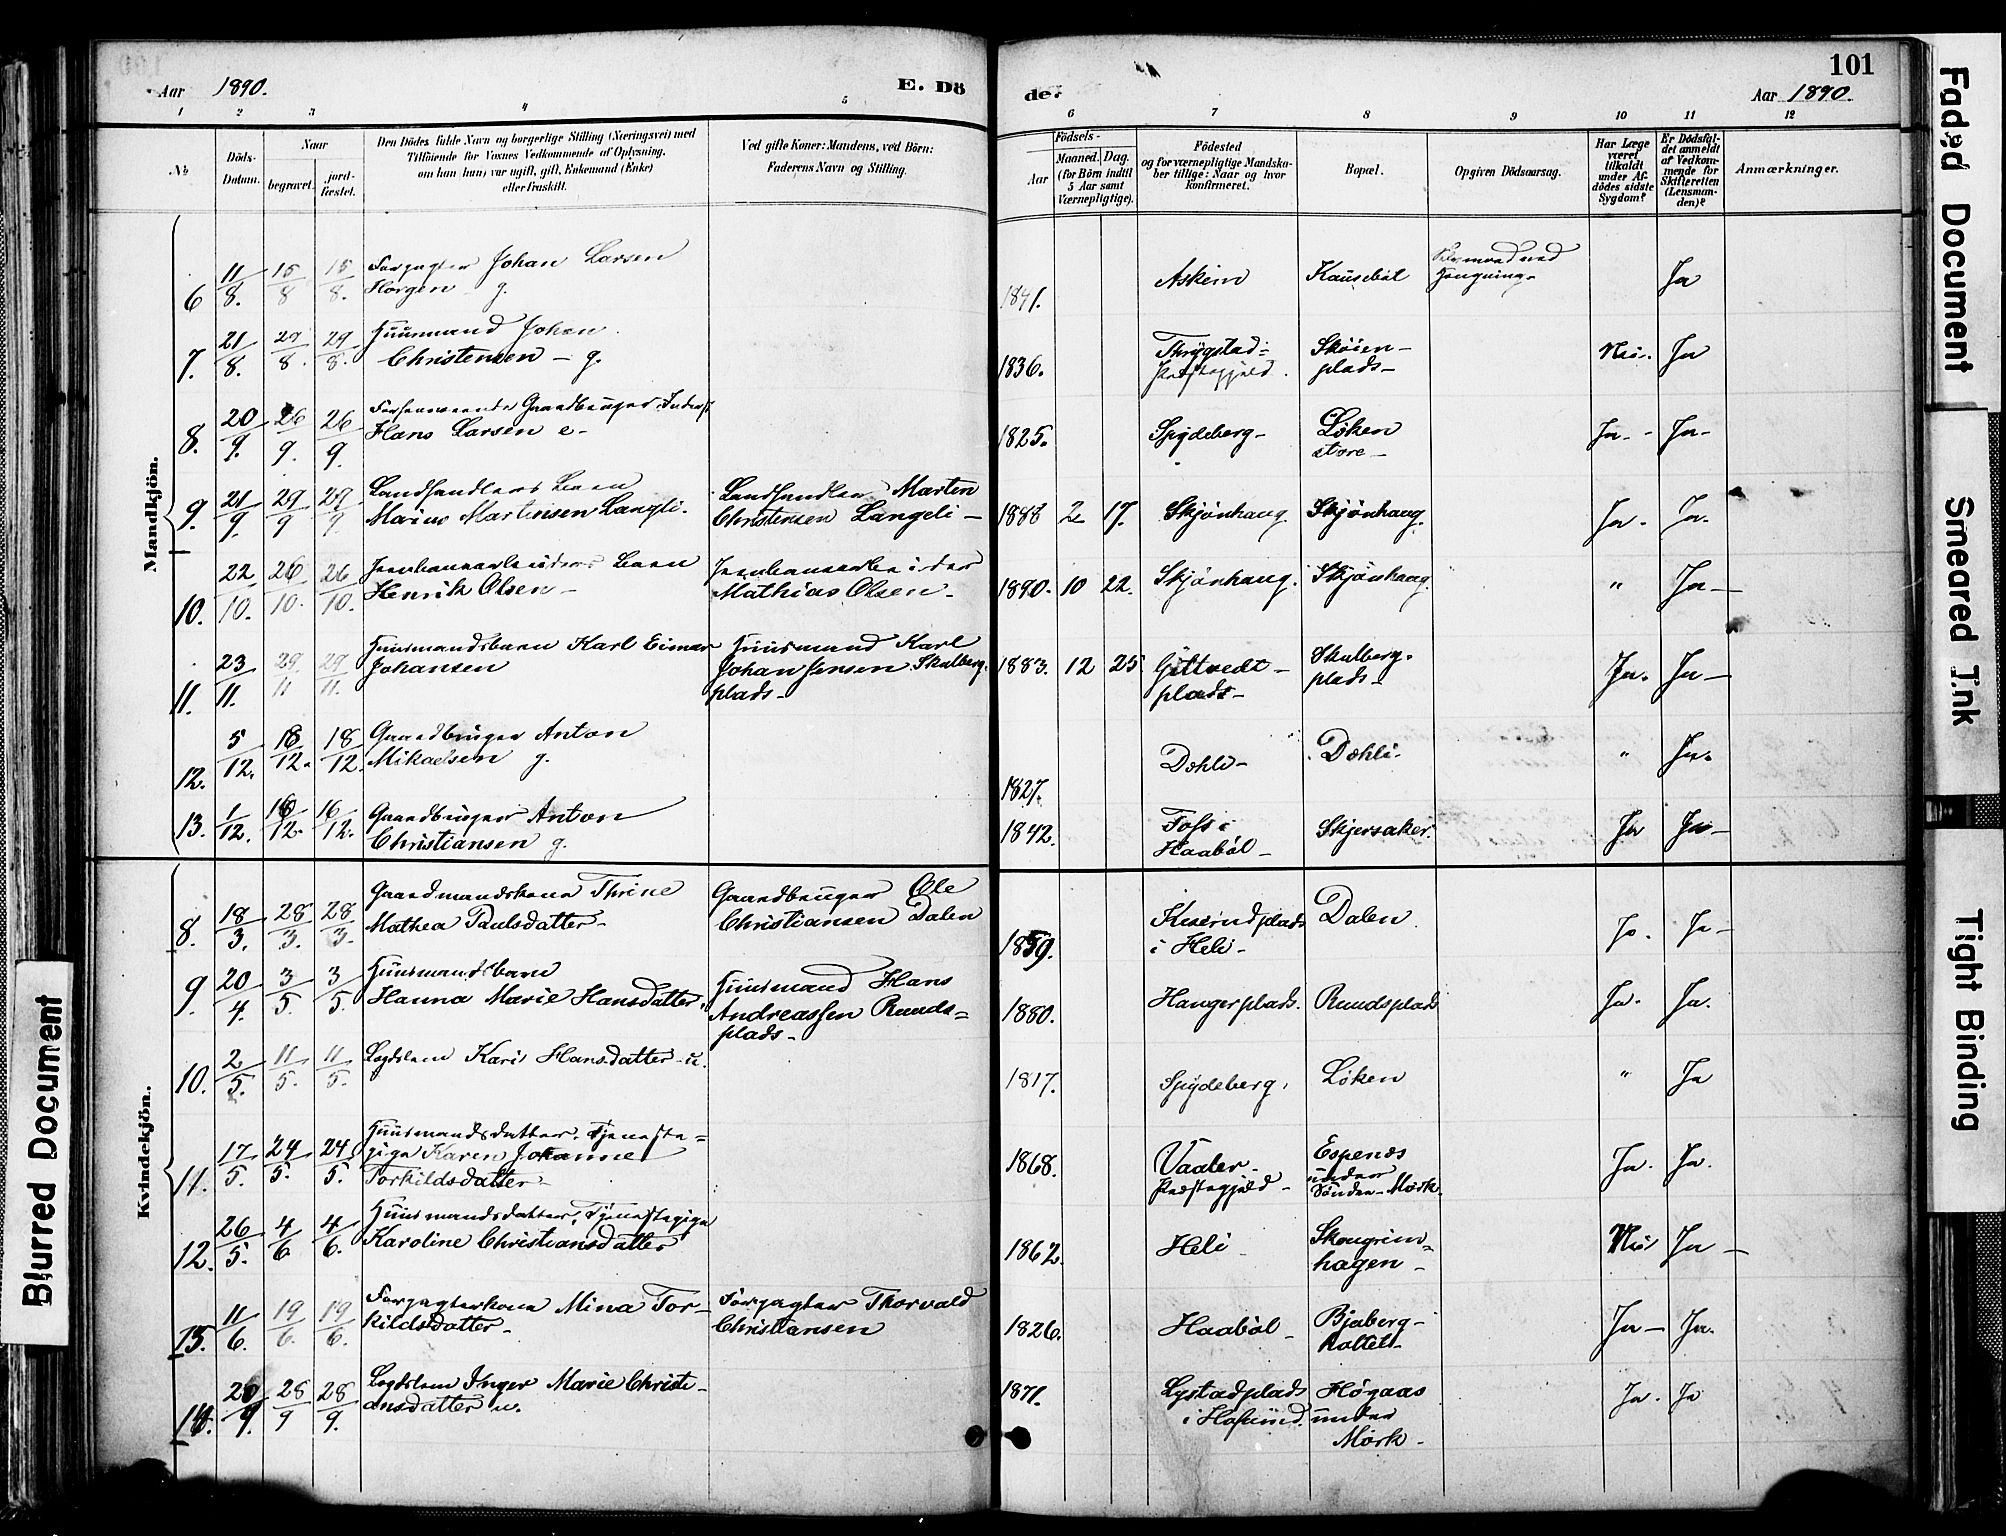 101
Aar 1890.
E. Döde.
Aar 1890.
1 2 3 4 5 6 7 8 9 10 11 12
No
Döds-Datum.
Naar
begravet.
jordfæstet.
Den Dödes fulde Navn og borgerlige Stilling (Næringsvei) med
Tilföiende for Voxnes Vedkommende af Oplysning,
om han (hun) var ugift, gift, Enkemand (Enke)
eller fraskilt.
Ved gifte Koner: Mandens, ved Börn:
Faderens Navn og Stilling.
Födsels-
Aar
Maaned. Dag.
(for Börn indtil
5 Aar samt
Værnepligtige).
Födested
og for værnepligtige Mandska-
ber tillige: Naar og hvor
konfirmeret.
Bopæl.
Opgiven Dödsaarsag.
Har Læge
været
tilkaldt
under Af-
dödes sidste
Sygdom?
Er Dödsfal-
det anmeldt
af Vedkom-
mende for
Skifteretten
(Lensman-
den)?
Anmærkninger.
Mandkjön.
6 11/8. 15/8 15/8. Forpagter Johan Larsen
Horgen g. 1841. Askim Ja
7. 21/8. 29/8. 29/8. Huusmand Johan
Christensen – g. 1836. Thrygstad=
Præstegjeld. Skøien-
plads- Nei. Ja
8. 20/9. 26/9. 26/9. Forhenværende Gaardbruger
Hans Larsen e- 1825. Spydeberg- Løken
store- Ja- Ja-
9. 21/9 29/9 29/9 Landhandlers Barn
Marius Martinsen Langli. Landhandler Marten
Christensen Langeli- 1888 2 17. Skjønhaug Skjønhaug. Ja. Ja.
10. 22/10. 26/10. 26/10. Jernbanearbeiders Barn
Henrik Olsen- Jernbanearbeider
Mathias Olsen- 1890. 10 22. Skjønhaug. Skjønhaug. " Ja-
11. 23/11. 29/11 29/11. Huusmandsbarn Karl Eimar
Johansen Huusmand Karl
Johan Jensen Skulberg.
plads- 1883. 12 25. Gittvedt-
plads- Skulberg.
plads- Ja. Ja-
12. 5/12. 18/12. 18/12. Gaardbruger Anton
Mikaelsen g. 1827. Dæhli- Dæhli- " Ja.
13. 1/12. 16/12. 16/12. Gaardbruger Anton
Christiansen g. 1842. Foss i
Haabøl- Skjersaker. Ja Ja-
Kvindekjön.
8. 18/3. 28/3. 28/3. Gaardmandskone Thrine
Mathea Paulsdatter- Gaardbruger Ole
Christiansen Dalen 1859.
i Heli- Dalen Ja. Ja-
9. 20/4. 3/5. 3/5. Huusmandsbarn
Hanna Marie Hansdatter. Huusmand Hans
Andreassen Ruuds=
plads- 1880. Haugerplads. Ruudsplads Ja. Ja.
10. 2/5. 11/5. 11/5. Lægdslem Kari Hansdatter- u. 1817. Spydeberg. Løken " Ja
11. 17/5. 24/5. 24/5. Huusmandsdatter, Tjeneste=
pige Karen Johanne
Torkildsdatter- 1868. Vaaler-
Præstegjeld- Espenæs
under
Søndre-Mørk. Ja. Ja.
12. 26/5. 4/6. 4/6. Huusmandsdatter, Tjenestepige
Karoline Christiansdatter 1862. Heli- Skougrim=
hagen- Nei Ja-
13. 11/6. 19/6. 19/6. Forpagterkone Mina Tor-
kildsdatter- Forpagter Thorvald
Christiansen 1826. Haabøl- Bjaberg-
kollet- Ja- Ja.
14. 20/9. 28/9 28/9. Lægdslem Inger Marie Christi-
ansdatter u. 1871. Lystadplads
i Hafslund. Høgaas
under
Mørk- Ja. Ja
Faded Document Smeared Ink Tight Binding
Blurred Document